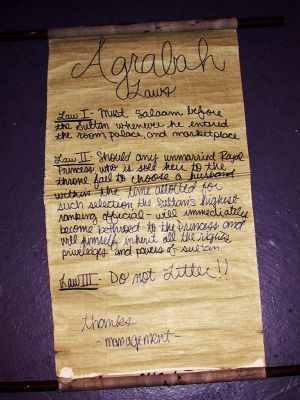 Agrabah
Laws
Law I - Must Salaam before
the Sultan whenever he entered
the room, palace, and marketplace
Law II - Should any unmarried Royal
Princess who is sole heir to the
throne fail to choose a husband
within the time allotted for
such selection the Sultan's highest
ranking official - will immediately
become bethroed to the Princess and
will himself inherit all the rights,
priveleges and powers of sultan.
Law III - Do not Litter!!
thanks
- management -